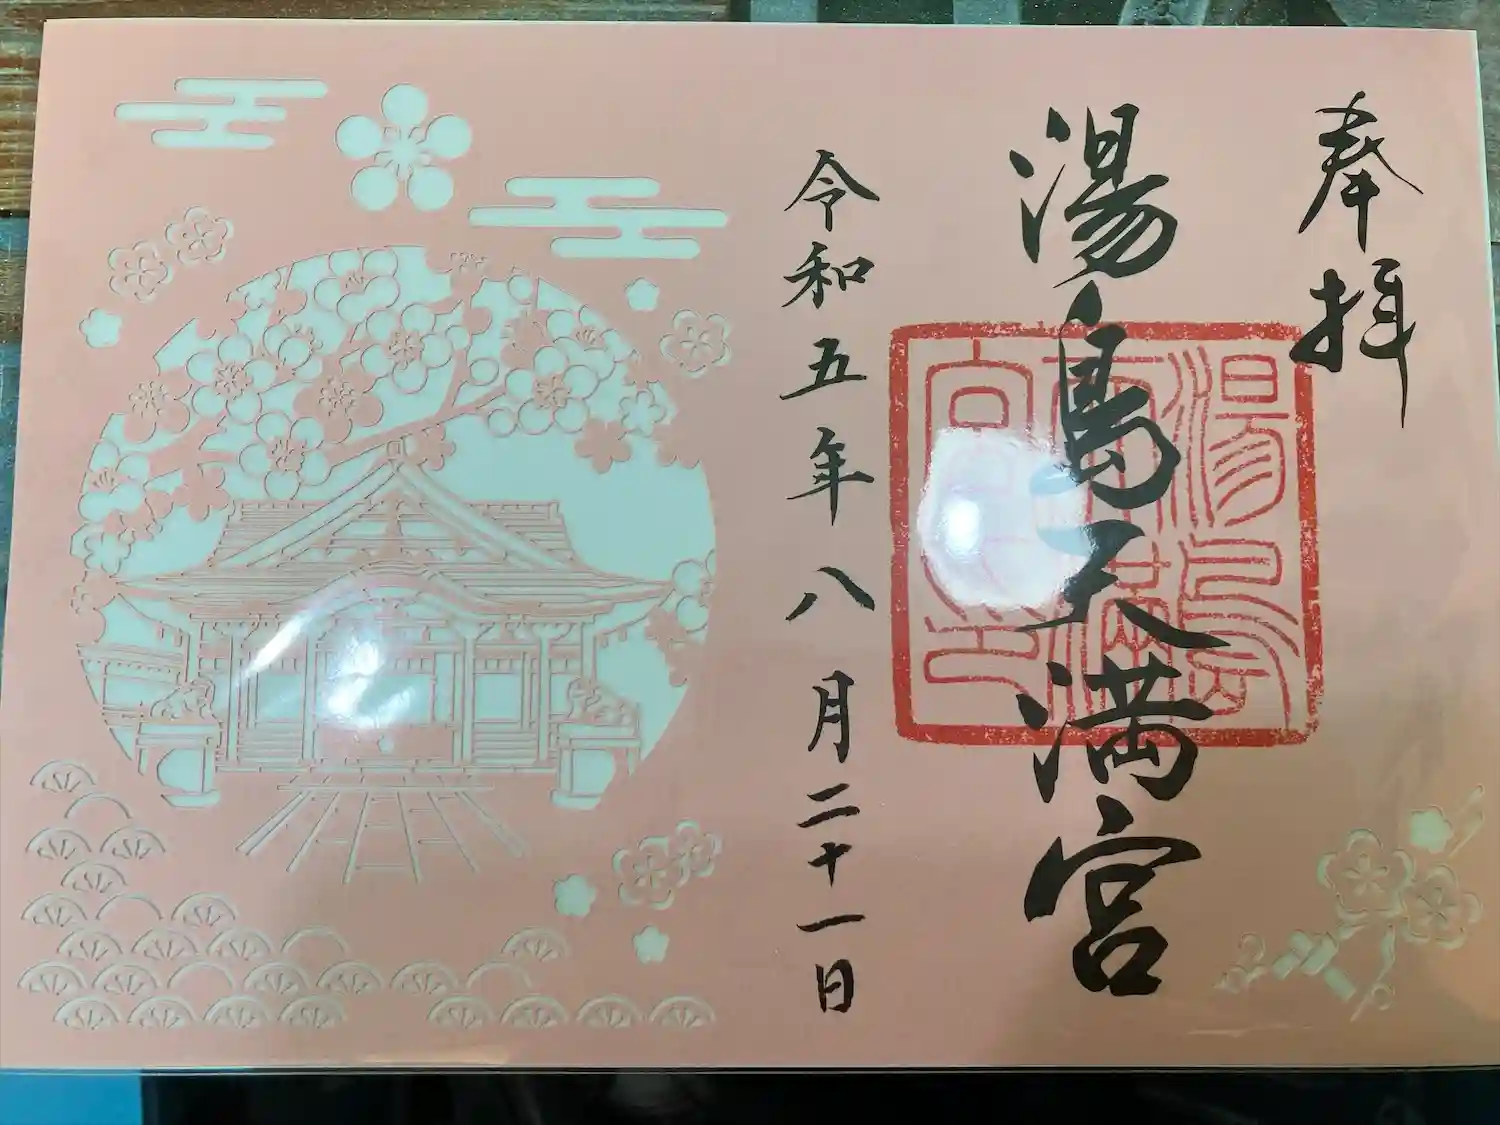 奉拝
湯島天満宮
湯島天満宮之印
令和五年八月二十一日